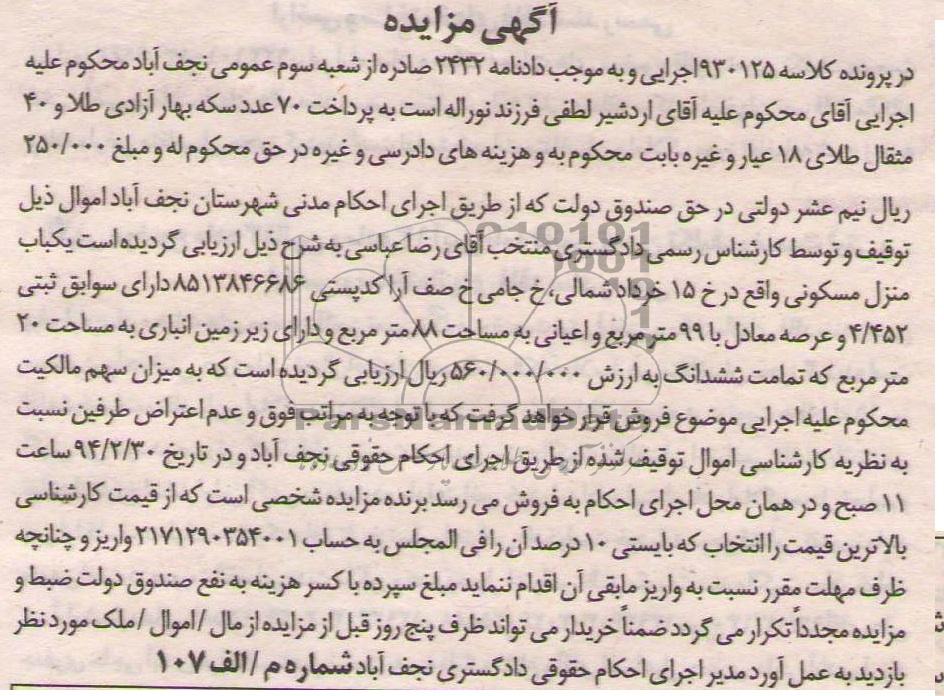 آگهی مزایده
در پرونده کلاسه ۹۳۰۱۲۵اجرایی و به موجب دادنامه ۲۴۳۲ صادره از شعبه سوم عمومی نجف آباد محکوم علیه
اجرایی آقای محکوم علیه آقای اردشیر لطفی فرزند نوراله است به پرداخت ۷۰عدد سکه بهار آزادی طلا و ۴۰
مثقال طلای ۱۸ عیار و غیره بابت محکوم به و هزینه های دادرسی و غیره در حق محکوم له و مبلغ ۲۵۰/۰۰۰
ریال نیم عشر دولتی در حق صندوق دولت که از طریق اجرای احکام مدنی شهرستان نجف آباد اموال ذیل
توقیف و توسط کارشناس رسمی دادگستری منتخب آقای رضا عباسی به شرح ذیل ارزیابی گردیده است یکباب
منزل مسکونی واقع در خ ۱۵ خرداد شمالی، خ جامی خ صف آرا کدپستی ۸۵۱۳۸۴۶۶۸۶دارای سوابق ثبتی
۴/۴۵۲و عرصه معادل با ۹۹ متر مربع و اعیانی به مساحت ۸۸متر مربع و دارای زیر زمین انباری به مساحت ۲۰
متر مربع که تمامت ششدانگ به ارزش ۵۶۰/۰۰۰/۰۰۰ ریال ارزیابی گردیده است که به میزان سهم مالکیت
محکوم علیه اجرایی موضوع فروش قرار خواهد گرفت که با توجه به مراتب فوق و عدم اعتراض طرفین نسبت
به نظریه کارشناسی اموال توقیف شده از طریق اجرای احکام حقوقی نجف آباد و در تاریخ ۹۴/۲/۳۰ساعت
۱۱ صبح و در همان محل اجرای احکام به فروش می رسد برنده مزایده شخصی است که از قیمت کارشناسی
بالاترین قیمت را انتخاب که بایستی ۱۰درصد آن را فی المجلس به حساب ۲۱۷۱۲۹۰۳۵۴۰۰۱ واریز و چنانچه
ظرف مهلت مقرر نسبت به واریز مابقی آن اقدام ننماید مبلغ سپرده با کسر هزینه به نفع صندوق دولت ضبط و
مزایده مجدداً تکرار می گردد ضمناً خریدار می تواند ظرف پنج روز قبل از مزایده از مال /اموال /ملک مورد نظر
بازدید به عمل آورد مدیر اجرای احکام حقوقی دادگستری نجف آباد شماره م /الف ۱۰۷